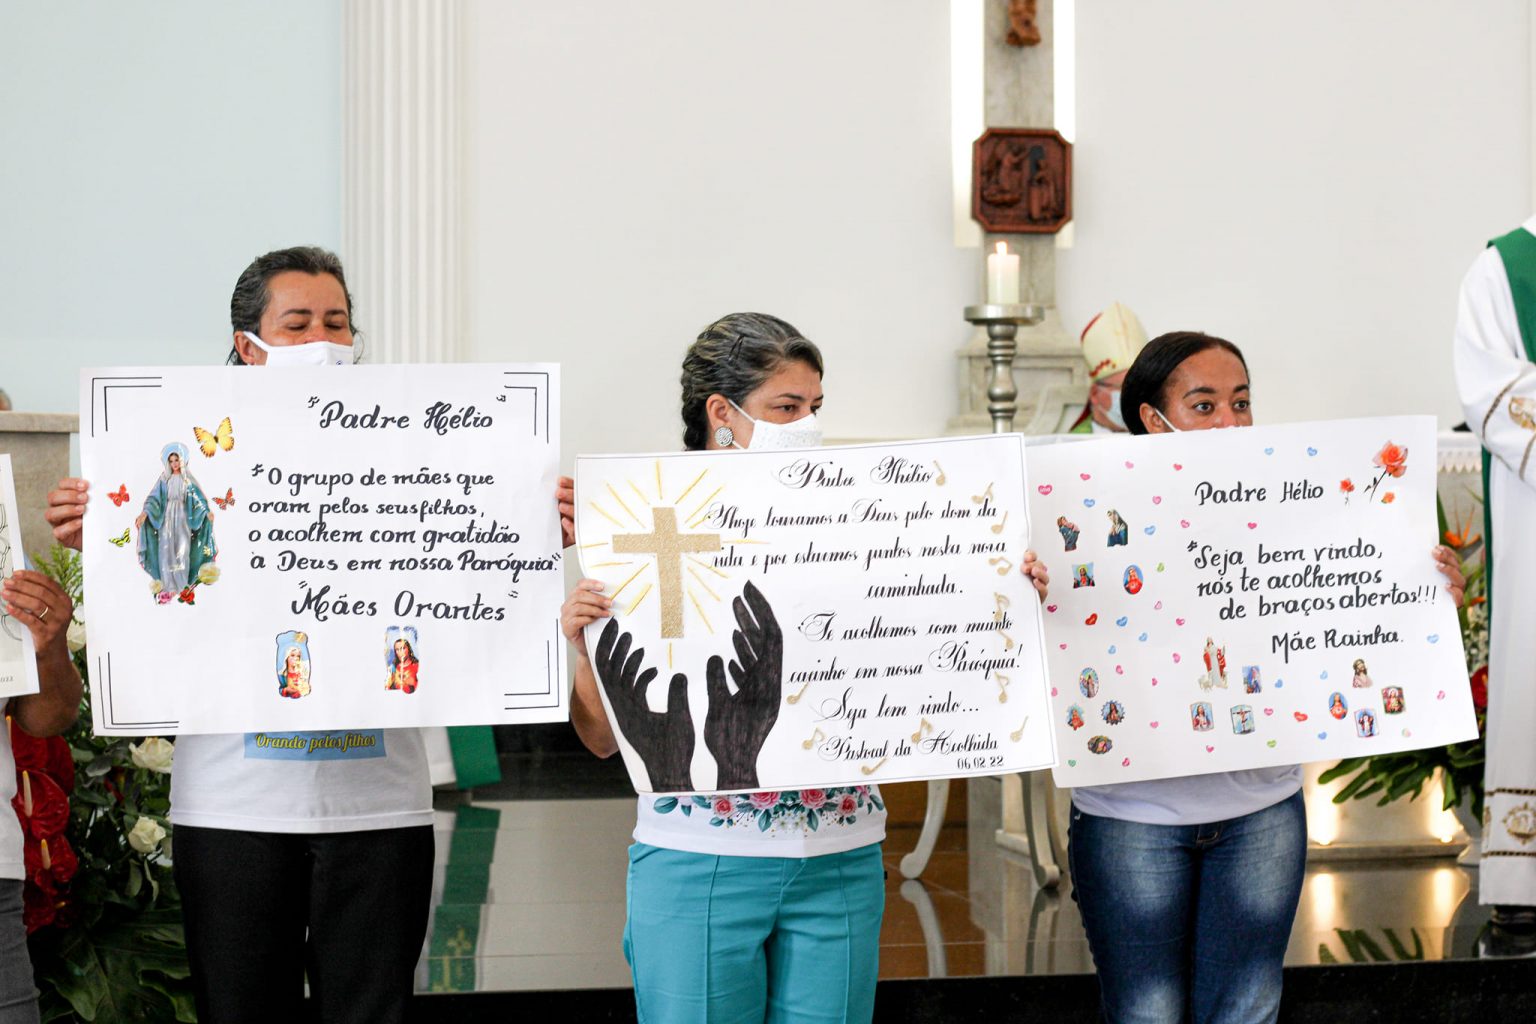 "Padre Hélio"
"O grupo de mães que
oram pelos seus filhos,
o acolhem com gratidão
à Deus em nossa Paróquia."
"Mães Orantes"
Orando pelos filhos
Padre Hélio
Hoje louvamos a Deus pelo dom da
vida e por estarmos juntos nesta nova
caminhada.
Te acolhemos com muinto
carinho em nossa Paróquia!
Seja bem vindo...
Pastoral da Acolhida
06.02.22
Padre Hélio
"Seja bem vindo,
nós te acolhemos
de braços abertos!!!
Mãe Rainha.